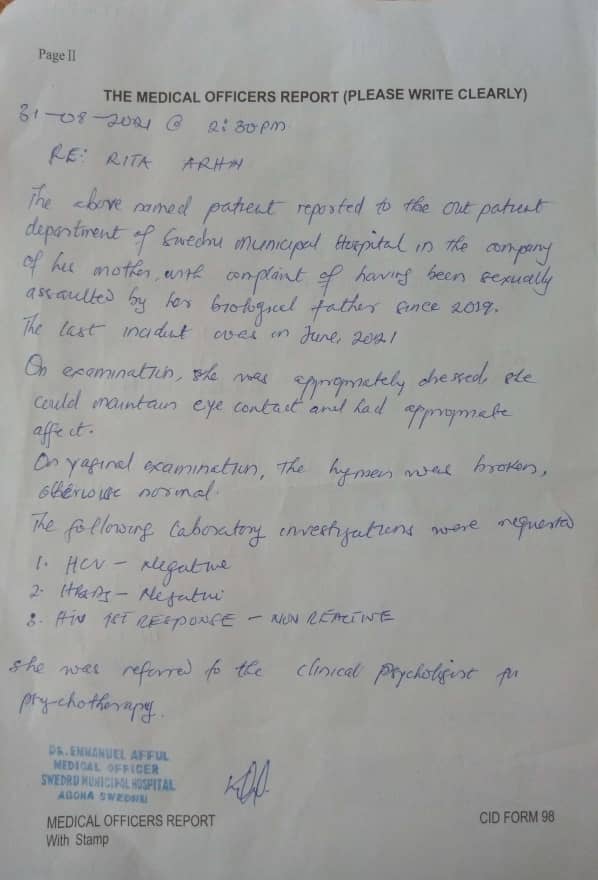 Page II
THE MEDICAL OFFICERS REPORT (PLEASE WRITE CLEARLY)
31-08-2021 @ 2:30PM
RE: RITA ARHIN
The above named patient reported to the out patient
department of Swedru Municipal Hospital in the company
of her mother, with complaint of having been sexually
assaulted by her biological father since 2019.
The last incident was in June, 2021
On examination, she was appropriately dressed, she
could maintain eye contact and had appropriate
affect.
On vaginal examination, the hymen was broken,
otherwise normal.
The following laboratory investigations were requested
1. HCV - Negative
2. HBsAg - Negative
3. HIV 1ST RESPONSE - NON REACTIVE
She was referred to the clinical psychologist for
psychotherapy.
DR. EMMANUEL AFFUL
MEDICAL OFFICER
SWEDRU MUNICIPAL HOSPITAL
AGONA SWEDRU
MEDICAL OFFICERS REPORT
With Stamp
CID FORM 98